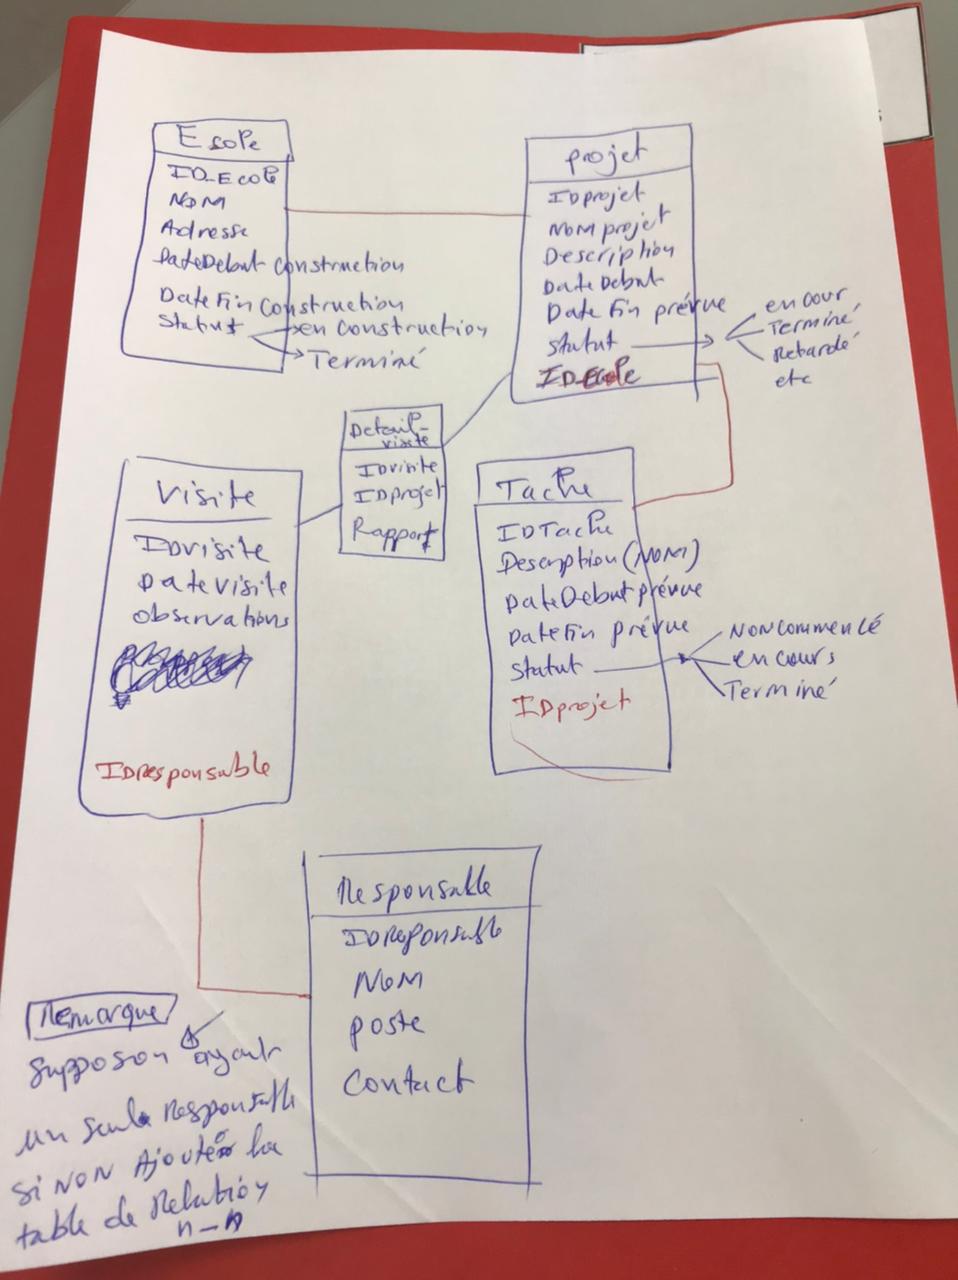 Ecole
ID_Ecole
NOM
Adresse
DateDebut construction
DateFin construction
Statut
en construction
Terminé
projet
IDprojet
NOM projet
Description
DateDebut
DateFin prévue
Statut
en cour
Terminé
Retardé
etc
ID_Ecole
Detail-
visite
IDvisite
IDprojet
Rapport
Visite
IDvisite
Datevisite
observations
IDresponsable
Tache
IDTache
Description (NOM)
DateDebut prévue
DateFin prévue
Statut
NON commencé
en cours
Terminé
IDprojet
Responsable
IDReponsable
NOM
poste
Contact
Remarque
Supposon ayant
un seule Responsable
si NON Ajouter la
table de Relation
n-n